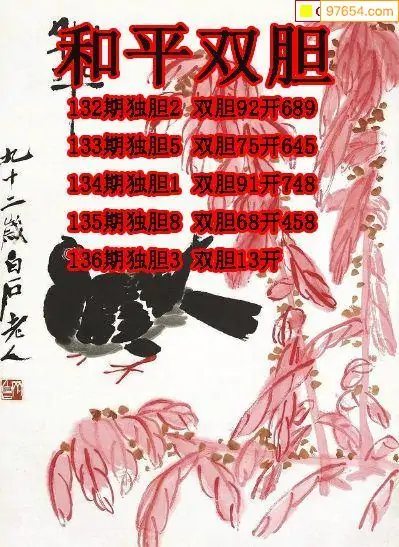 97654.com
和平双胆
132期独胆2 双胆92开689
133期独胆5 双胆75开645
134期独胆1 双胆91开748
135期独胆8 双胆68开458
136期独胆3 双胆13开
九十二岁白石老人